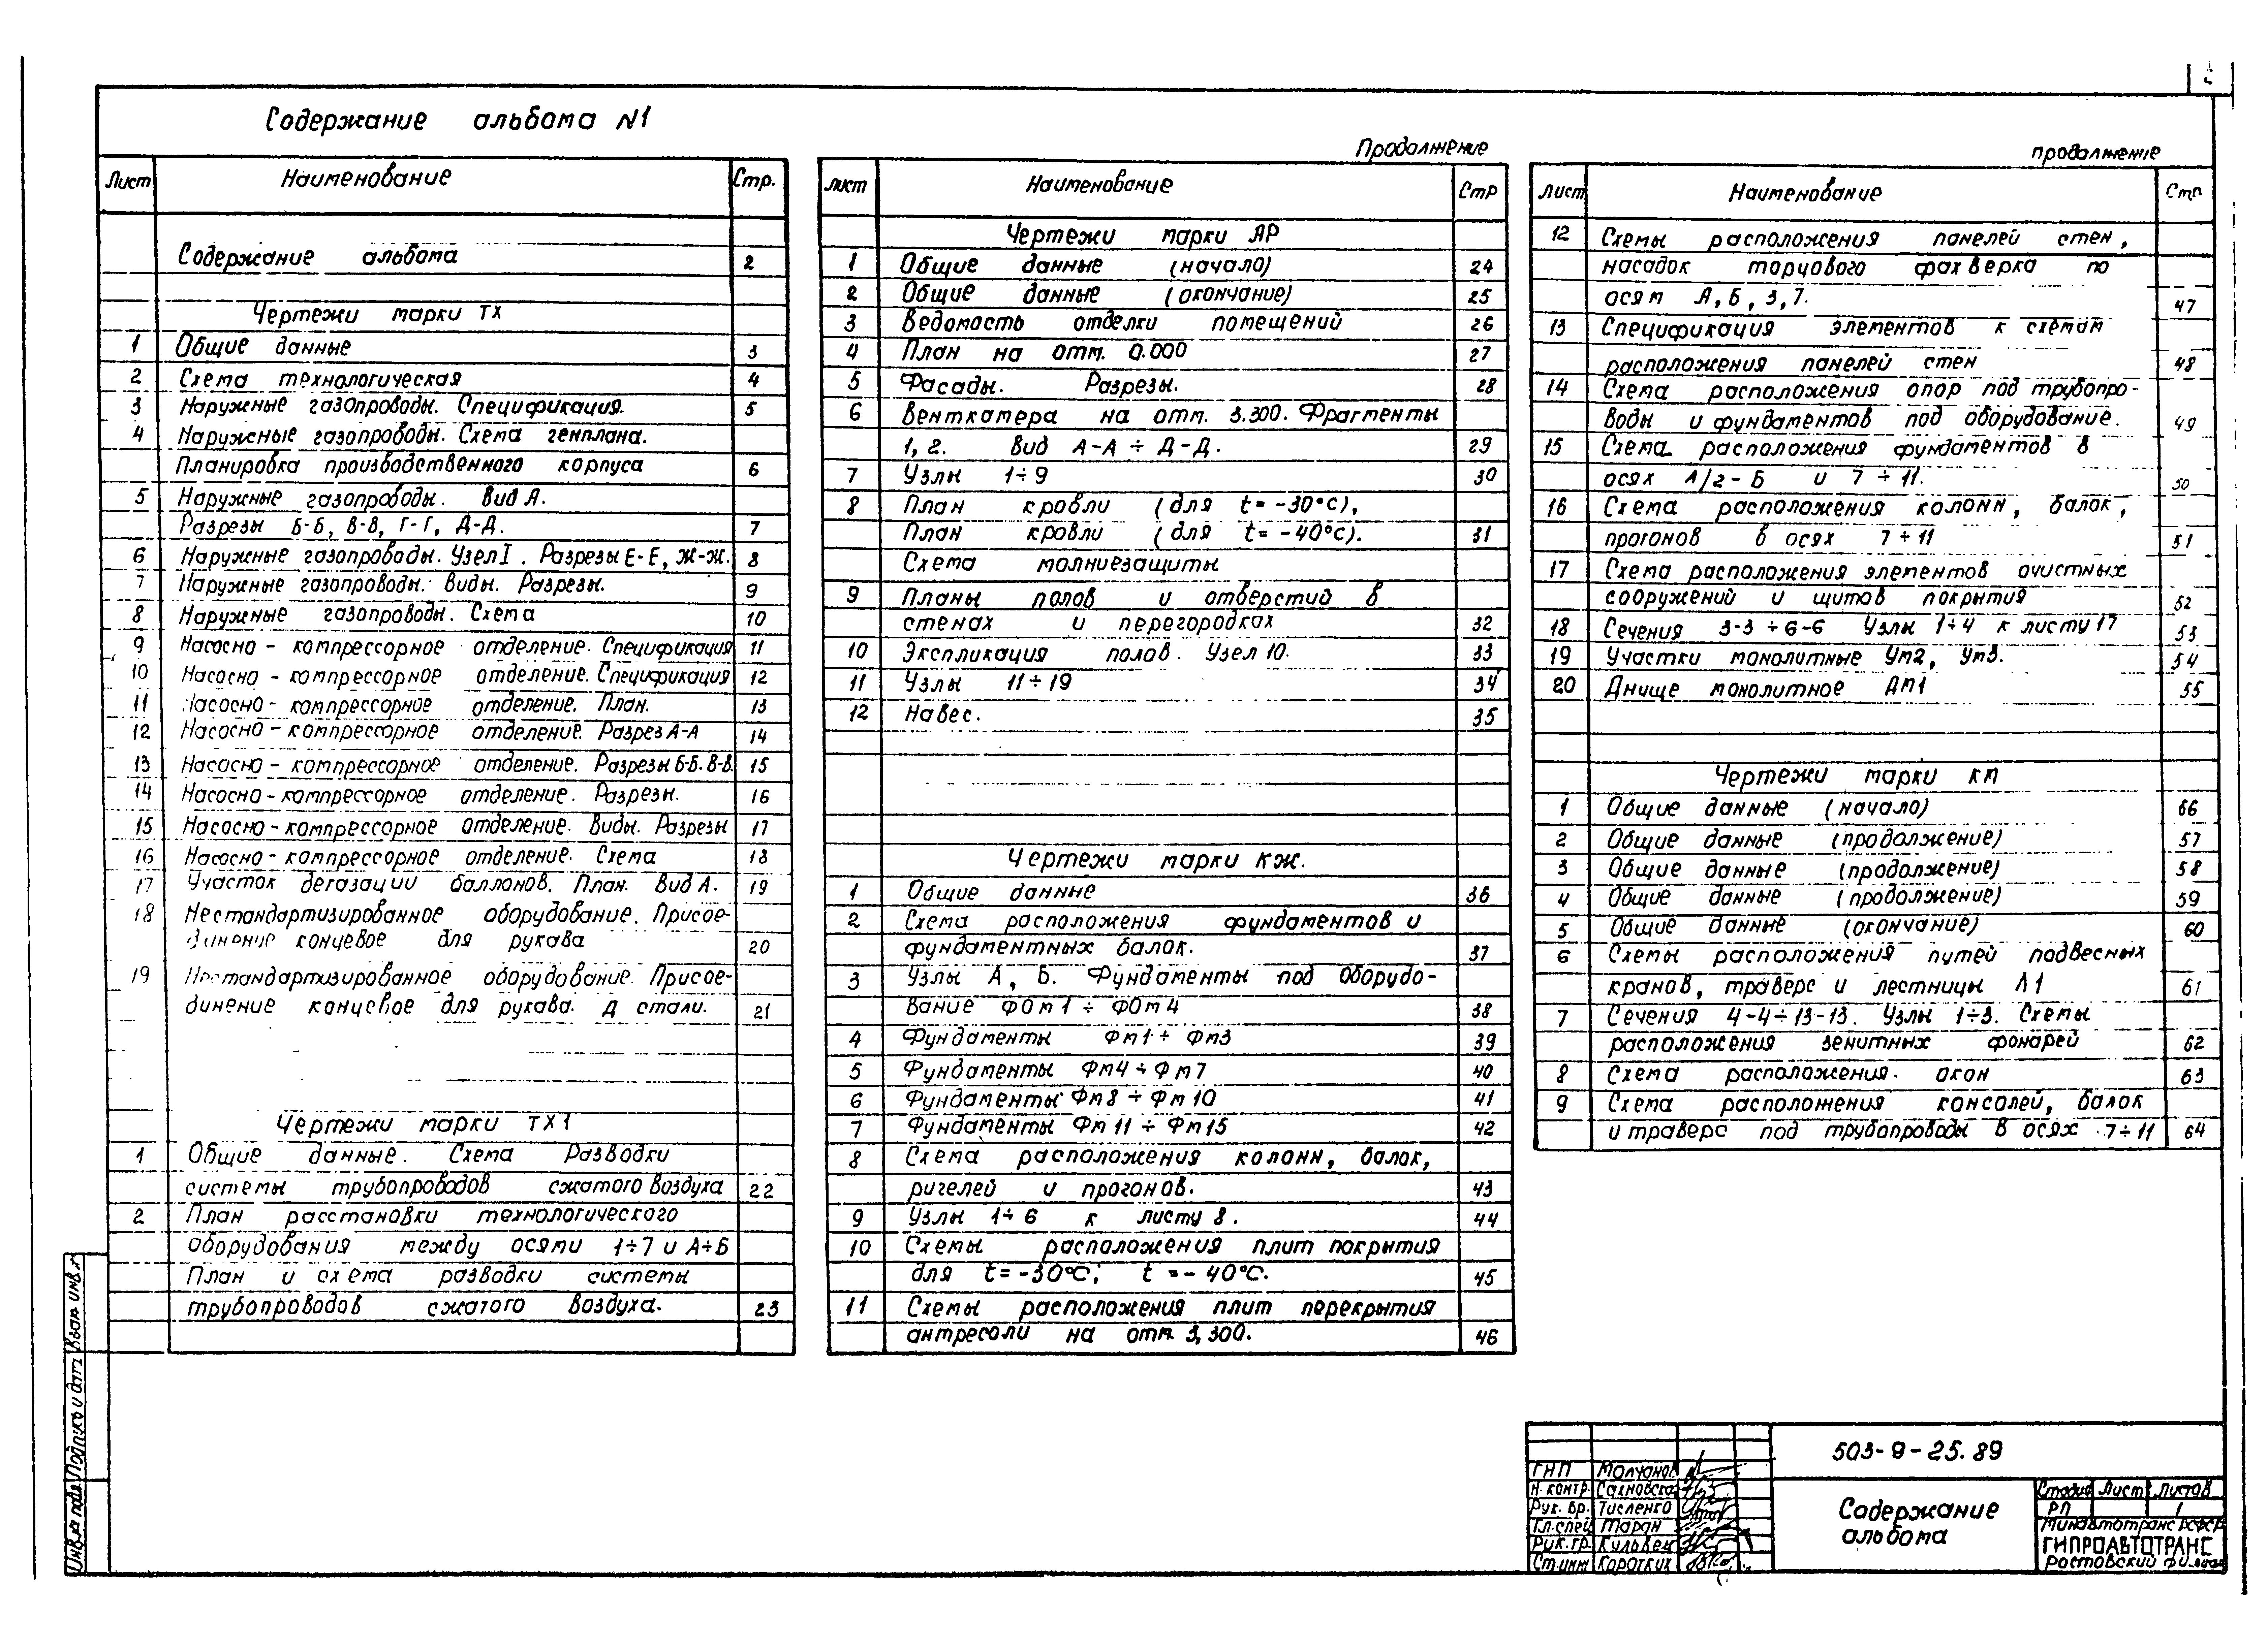 2
Содержание альбома N1
Лист Наименование Стр.
Содержание альбома 2
Чертежи марки ТХ
1 Общие данные 3
2 Схема технологическая 4
3 Наружные газопроводы. Спецификация. 5
4 Наружные газопроводы. Схема генплана.
Планировка производственного корпуса 6
5 Наружные газопроводы. Вид А.
Разрезы Б-Б, В-В, Г-Г, Д-Д. 7
6 Наружные газопроводы. Узел I. Разрезы Е-Е, Ж-Ж. 8
7 Наружные газопроводы. Виды. Разрезы. 9
8 Наружные газопроводы. Схема 10
9 Насосно-компрессорное отделение. Спецификация 11
10 Насосно-компрессорное отделение. Спецификация 12
11 Насосно-компрессорное отделение. План. 13
12 Насосно-компрессорное отделение. Разрез А-А 14
13 Насосно-компрессорное отделение. Разрезы Б-Б. В-В. 15
14 Насосно-компрессорное отделение. Разрезы. 16
15 Насосно-компрессорное отделение. Виды. Разрезы 17
16 Насосно-компрессорное отделение. Схема 18
17 Участок дегазации баллонов. План. Вид А. 19
18 Нестандартизированное оборудование. Присое-
динение концевое для рукава 20
19 Нестандартизированное оборудование. Присое-
динение концевое для рукава. Д стали. 21
Чертежи марки ТХ1
1 Общие данные. Схема Разводки
системы трубопроводов сжатого воздуха 22
2 План расстановки технологического
оборудования между осями 1÷7 и А÷Б
План и схема разводки системы
трубопроводов сжатого воздуха. 23
Продолжение
лист Наименование Стр
Чертежи марки АР
1 Общие данные (начало) 24
2 Общие данные (окончание) 25
3 Ведомость отделки помещений 26
4 План на отм. 0.000 27
5 Фасады. Разрезы. 28
6 Венткамера на отм. 3.300. Фрагменты
1, 2. Вид А-А ÷ Д-Д. 29
7 Узлы 1÷9 30
8 План кровли (для t=-30°С),
План кровли (для t=-40°С). 31
Схема молниезащиты
9 Планы полов и отверстий в
стенах и перегородках 32
10 Экспликация полов. Узел 10. 33
11 Узлы 11÷19 34
12 Навес. 35
Чертежи марки КЖ.
1 Общие данные 36
2 Схема расположения фундаментов и
фундаментных балок. 37
3 Узлы А, Б. Фундаменты под оборудо-
вание ФОм1 ÷ ФОм4 38
4 Фундаменты Фм1÷ Фм3 39
5 Фундаменты Фм4÷Фм7 40
6 Фундаменты Фм8 ÷ Фм10 41
7 Фундаменты Фм11÷Фм15 42
8 Схема расположения колонн, балок,
ригелей и прогонов. 43
9 Узлы 1÷6 к листу 8. 44
10 Схемы расположения плит покрытия
для t=-30°С; t=-40°С. 45
11 Схемы расположения плит перекрытия
антресоли на отм 3,300. 46
продолжение
Лист Наименование Стр
12 Схемы расположения панелей стен,
насадок торцового фахверка по
осям А, Б, 3, 7. 47
13 Спецификация элементов к схемам
расположения панелей стен 48
14 Схема расположения опор под трубопро-
воды и фундаментов под оборудование. 49
15 Схема расположения фундаментов в
осях А/2-Б и 7÷11. 50
16 Схема расположения колонн, балок,
прогонов в осях 7÷11 51
17 Схема расположения элементов очистных
сооружений и щитов покрытия 52
18 Сечения 3-3÷6-6 Узлы 1÷4 к листу 17 53
19 Участки монолитные Ум2, Ум3. 54
20 Днище монолитное Дм1 55
Чертежи марки КМ
1 Общие данные (начало) 56
2 Общие данные (продолжение) 57
3 Общие данные (продолжение) 58
4 Общие данные (продолжение) 59
5 Общие данные (окончание) 60
6 Схемы расположения путей подвесных
кранов, траверс и лестницы Л1 61
7 Сечения 4-4÷13-13. Узлы 1÷3. Схемы
расположения зенитных фонарей 62
8 Схема расположения окон 63
9 Схема расположения консолей, балок
и траверс под трубопроводы в осях 7÷11 64
Инв.№ подл Подпись и дата Взам инв.№
ГИП Молчанов
Н. контр.
Рук. бр. Тисленко
Гл. спец Таран
Рук. гр.
Ст.инж Коротких
503-9-25.89
Содержание
альбома
Стадия Лист Листов
РП 1
Минавтотранс РСФСР
ГИПРОАВТОТРАНС
Ростовский филиал